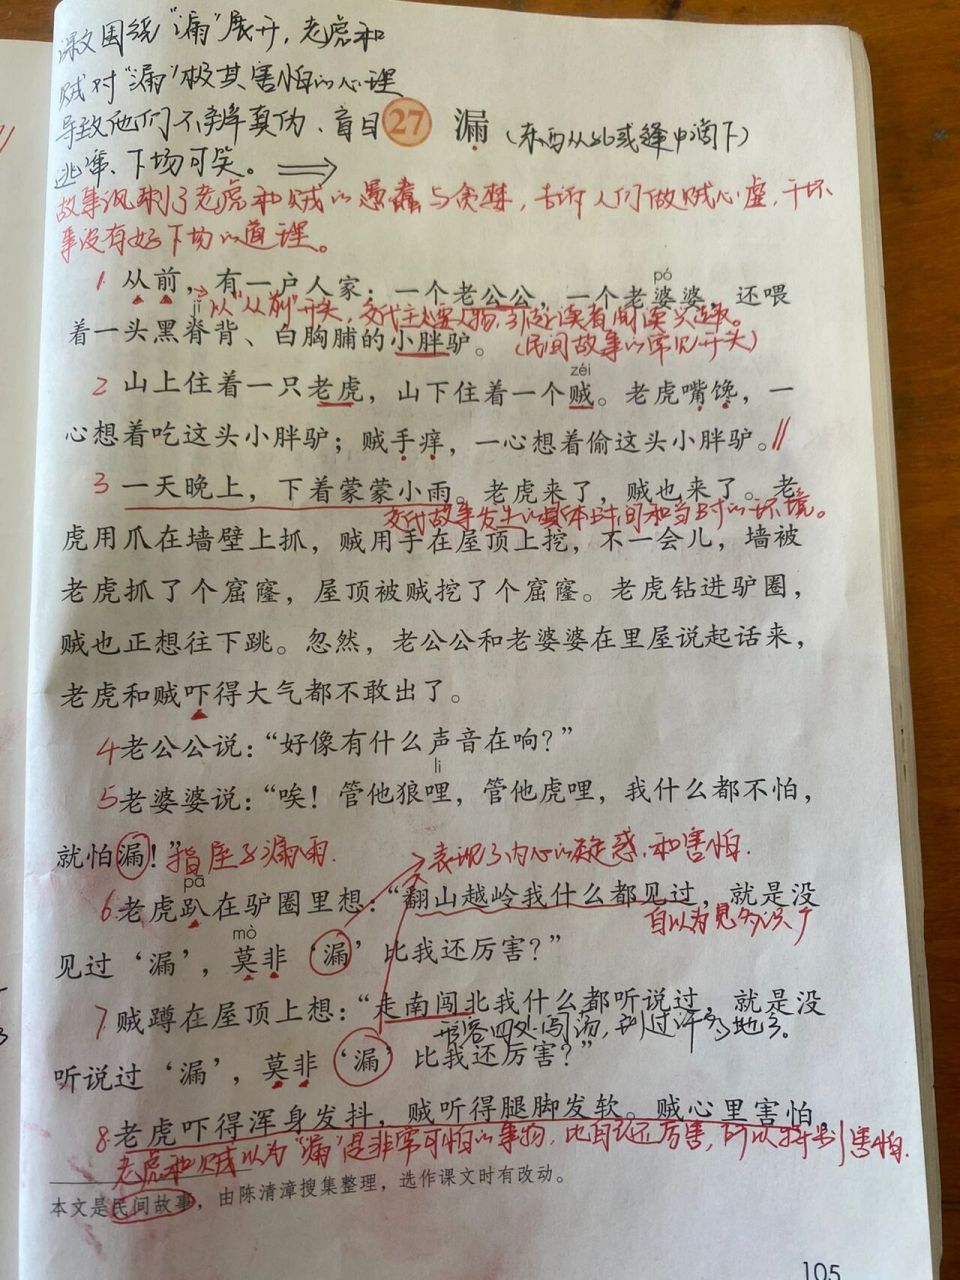 课文围绕“漏”展开，老虎和
贼对“漏”极其害怕的心理
导致他们不辨真伪、盲目
27 漏（东西从孔或缝中滴下）
逃窜、下场可笑。
故事讽刺了老虎和贼的愚蠢与贪婪，告诉人们做贼心虚，干坏
事没有好下场的道理。
pó
1 从前，有一户人家：一个老公公，一个老婆婆，还喂
jǐ 以“从前”开头，交代主要人物，引起读者阅读兴趣。
着一头黑脊背、白胸脯的小胖驴。（民间故事的常见开头）
zéi
2 山上住着一只老虎，山下住着一个贼。老虎嘴馋，一
心想着吃这头小胖驴；贼手痒，一心想着偷这头小胖驴。
3 一天晚上，下着蒙蒙小雨。老虎来了，贼也来了。老
交代故事发生的具体时间和当时的环境。
虎用爪在墙壁上抓，贼用手在屋顶上挖，不一会儿，墙被
老虎抓了个窟窿，屋顶被贼挖了个窟窿。老虎钻进驴圈，
贼也正想往下跳。忽然，老公公和老婆婆在里屋说起话来，
老虎和贼吓得大气都不敢出了。
4 老公公说：“好像有什么声音在响？”
li
5 老婆婆说：“唉！管他狼哩，管他虎哩，我什么都不怕，
就怕漏！”指屋子漏雨. 表现了内心的疑惑.和害怕.
pā
6. 老虎趴在驴圈里想：“翻山越岭我什么都见过，就是没
自以为见多识广
mò
见过‘漏’，莫非‘漏’比我还厉害？”
7 贼蹲在屋顶上想：“走南闯北我什么都听说过，就是没
形容四处闯荡，到过许多地方。
听说过‘漏’，莫非‘漏’比我还厉害？”
8. 老虎吓得浑身发抖，贼听得腿脚发软。贼心里害怕，
老虎和贼以为“漏”是非常可怕的事物，比自己还厉害，所以感到害怕.
本文是民间故事，由陈清漳搜集整理，选作课文时有改动。
105